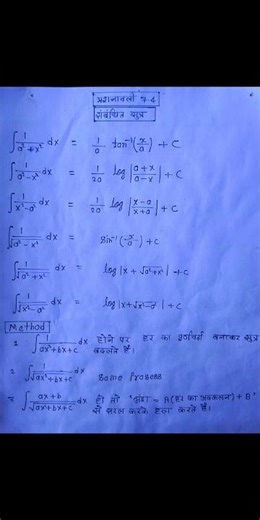 प्रश्नावली 7.4
संबंधित सूत्र
∫ 1/(a²+x²) dx = 1/a tan⁻¹(x/a) + C
∫ 1/(a²-x²) dx = 1/2a log|(a+x)/(a-x)| + C
∫ 1/(x²-a²) dx = 1/2a log|(x-a)/(x+a)| + C
∫ 1/√(a²-x²) dx = sin⁻¹(x/a) + C
∫ 1/√(a²+x²) dx = log|x + √(a²+x²)| + C
∫ 1/√(x²-a²) dx = log|x+√(x²-a²)| + C
Method
1. ∫ 1/(ax²+bx+c) dx होने पर हर का पूर्णवर्ग बनाकर सूत्र
बदलते है।
2. ∫ 1/√(ax²+bx+c) dx Same Process
3. ∫ (ax+b)/√(ax²+bx+c) dx हो तो 'अंश = A(हर का अवकलन) + B'
से सरल करके हल करते है।